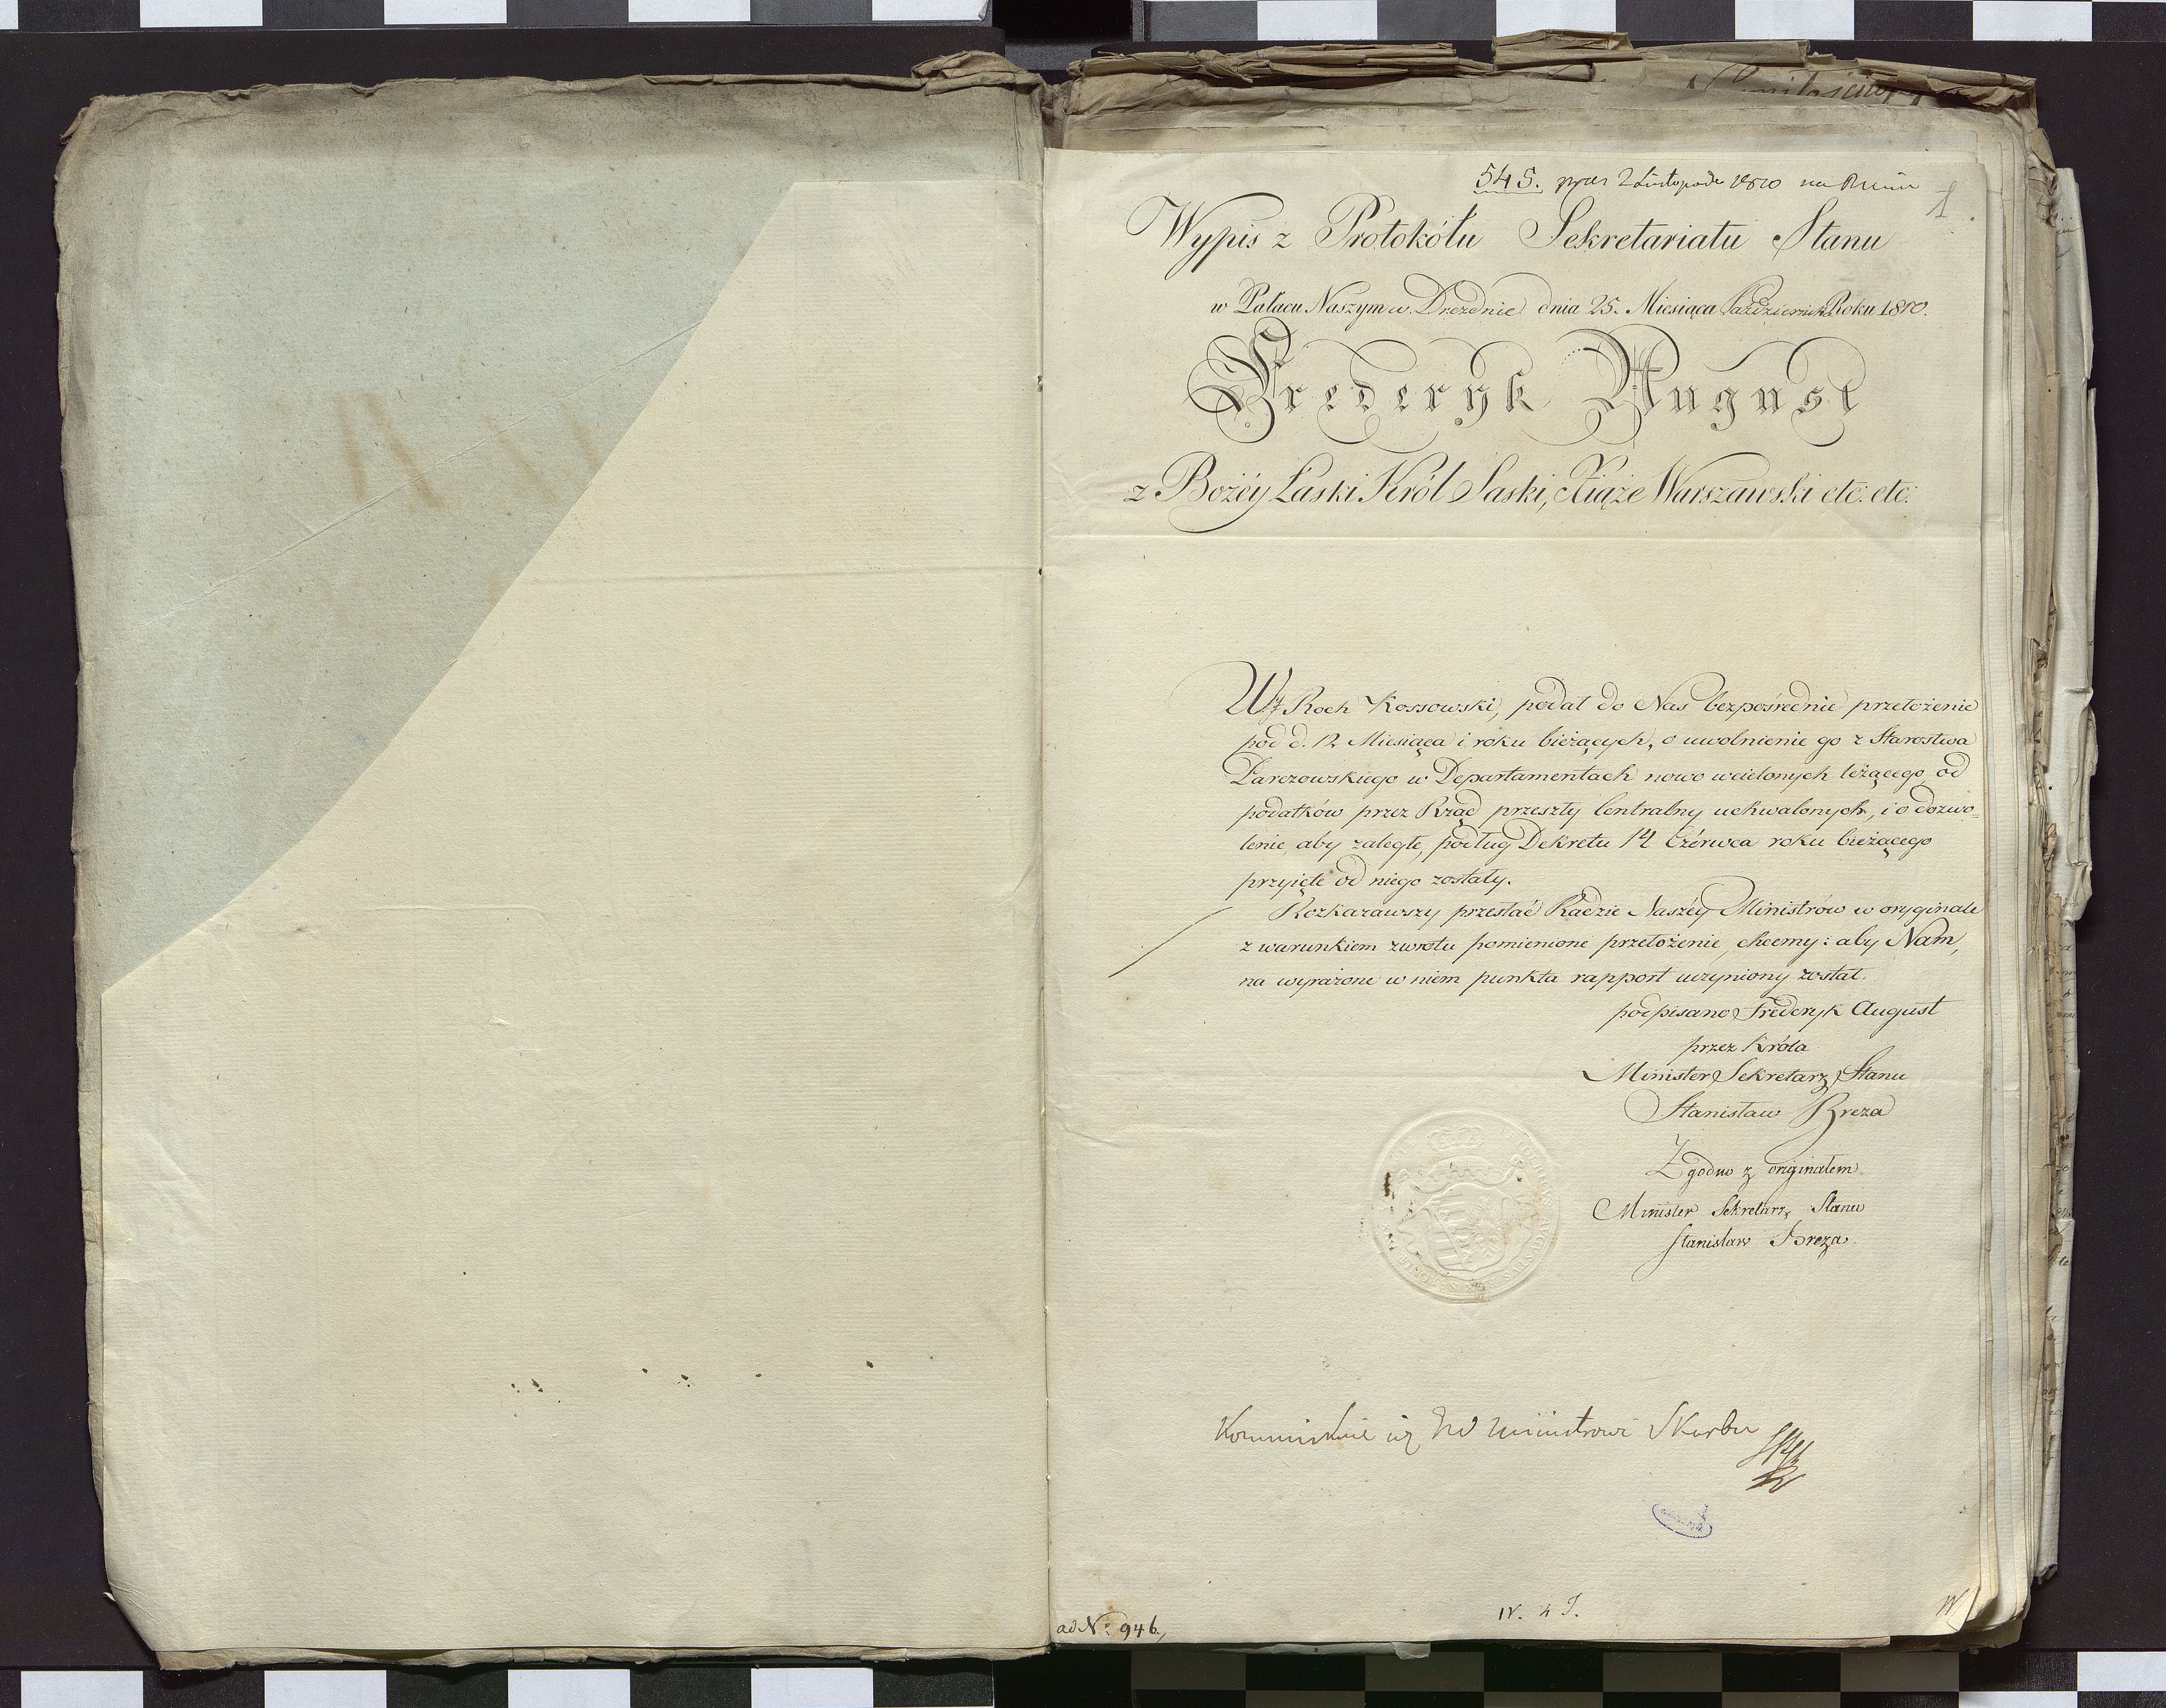 545. 2 Listopada 1810 na
1.
Wypis z Protokółu Sekretariatu Stanu
w Pałacu Naszym w Dreznie dnia 25. Miesiąca Października Roku 1810.
Frederyk August
z Bożéy Łaski Król Saski, Xiąże Warszawski etc: etc:
Ur Roch Kossowski, podał do Nas bezpośrednie przełożenie
pod d. 12 Miesiąca i roku bieżących, o uwolnienie go z Starostwa
w Departamentach nowo wcielonych leżącego, od
podatków przez Rząd przeszły Centralny uchwalonych, i o dozwo=
lenie, aby zaległe, podług Dekretu 14 Czérwca roku bieżącego
przyięte od niego zostały.
Rozkazawszy przesłać Radzie Naszéy Ministrów w oryginale
z warunkiem zwrotu pomienione przełożenie, chcemy: aby Nam,
na wyrażone w niem punkta rapport uczyniony został.
podpisano Frederyk August
przez Króla
Minister Sekretarz Stanu
Stanisław Breza
Zgodno z originałem
Minister Sekretarz Stanu
Stanisław Breza
Kommunikuie się JW Ministrowi Skarbu
ad No: 946,
IV. 4